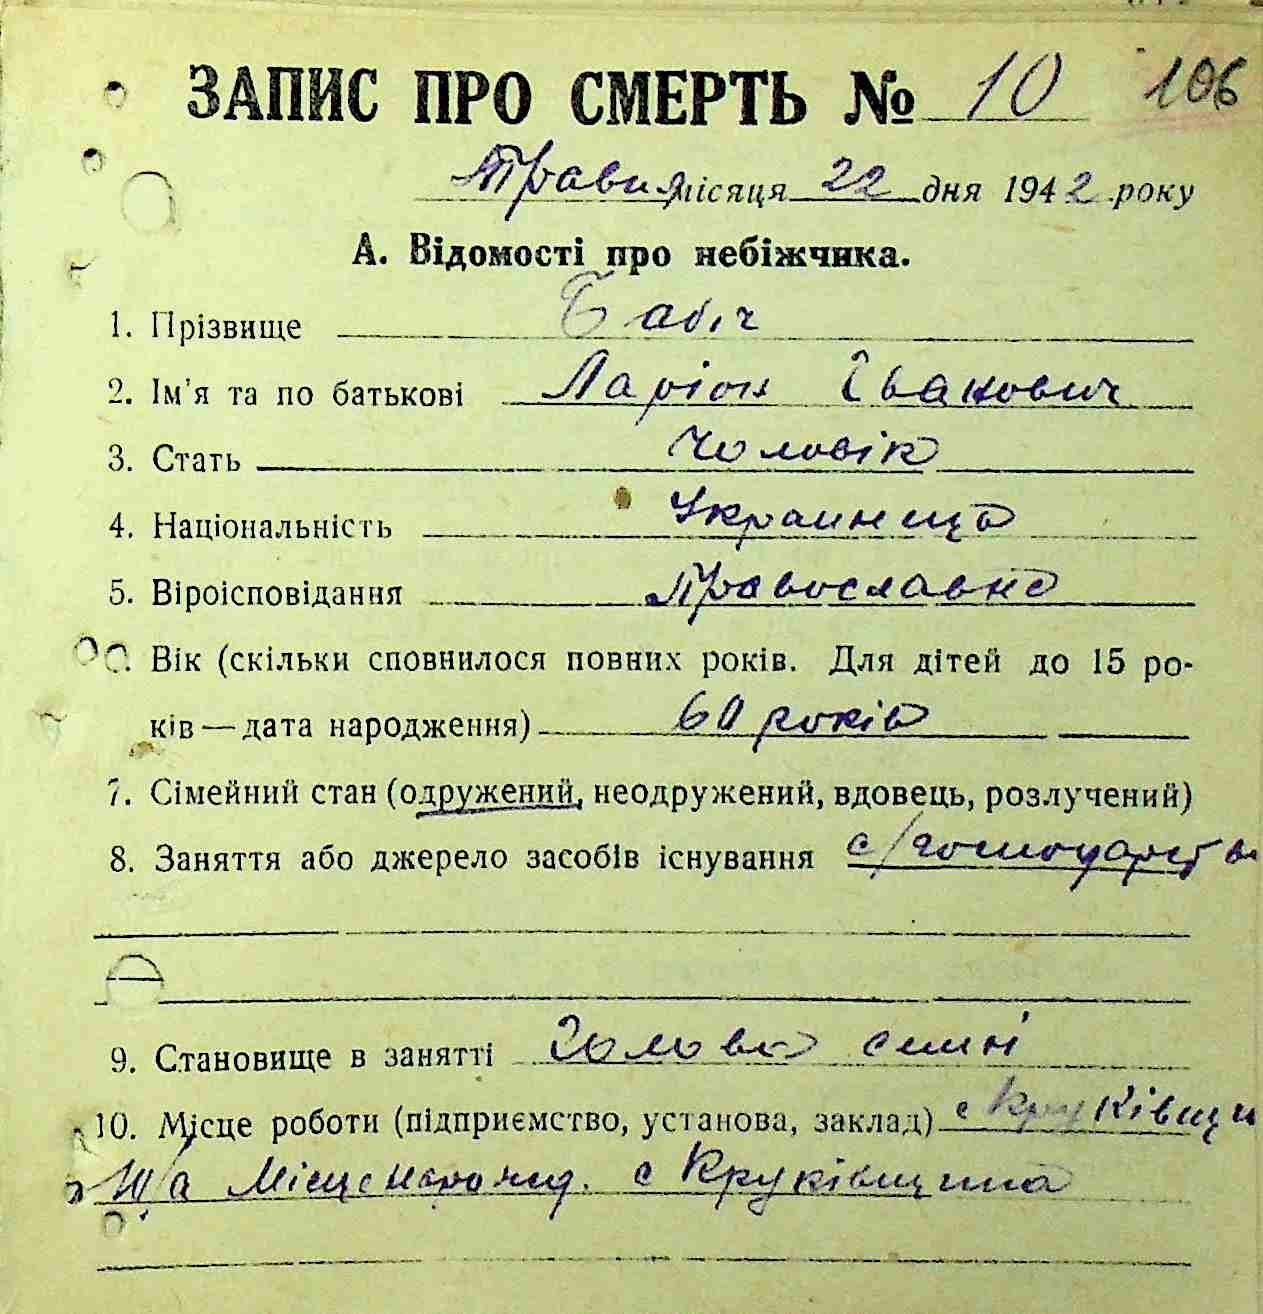 ЗАПИС ПРО СМЕРТЬ № 10 106
Травня місяця 22 дня 1942 року
А. Відомості про небіжчика.
1. Прізвище Бабіч
2. Ім'я та по батькові Ларіон Іванович
3. Стать Чоловік
4. Національність
5. Віроісповідання Православно
6. Вік (скільки сповнилося повних років. Для дітей до 15 ро-
ків — дата народження) 60 років
7. Сімейний стан (одружений, неодружений, вдовець, розлучений)
8. Заняття або джерело засобів існування с/господарство
9. Становище в занятті Голова
10. Місце роботи (підприємство, установа, заклад) с Круківщи
10/а с Круківщина